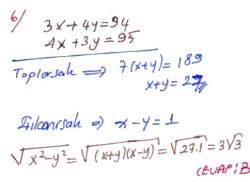 6/
3x + 4y = 94
4x + 3y = 95
Toplarsak ⟹ 7(x+y) = 189
x+y = 27//
⇒ x - y = 1
√x²-y² = √(x+y)(x-y) = √27.1 = 3√3
(CEVAP: B